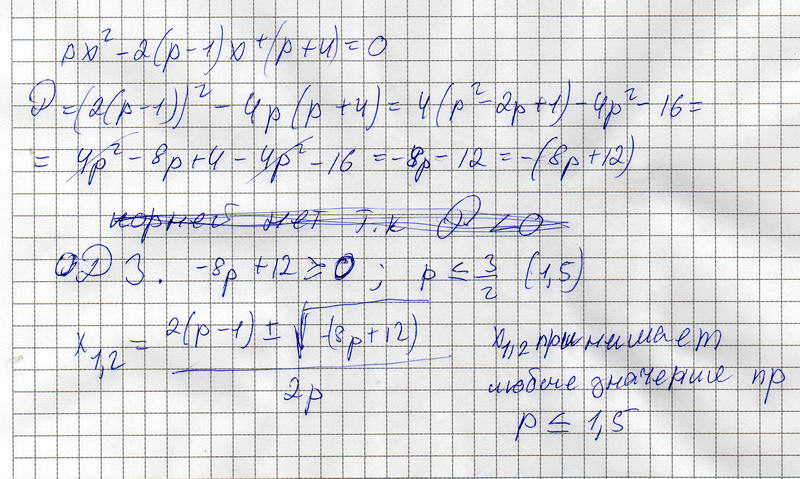 px² - 2(p-1)x + (p+4) = 0
D = (2(p-1))² - 4p(p+4) = 4(p² - 2p + 1) - 4p² - 16 =
= 4p² - 8p + 4 - 4p² - 16 = -8p - 12 = -(8p + 12)
корней нет т.к D < 0
ОДЗ. -8p + 12 ≥ 0; p ≤ 3/2 (1,5)
x₁,₂ = (2(p-1) ± √(-(8p+12)))/2p
x₁,₂ принимает
любое значение пр
p ≤ 1,5